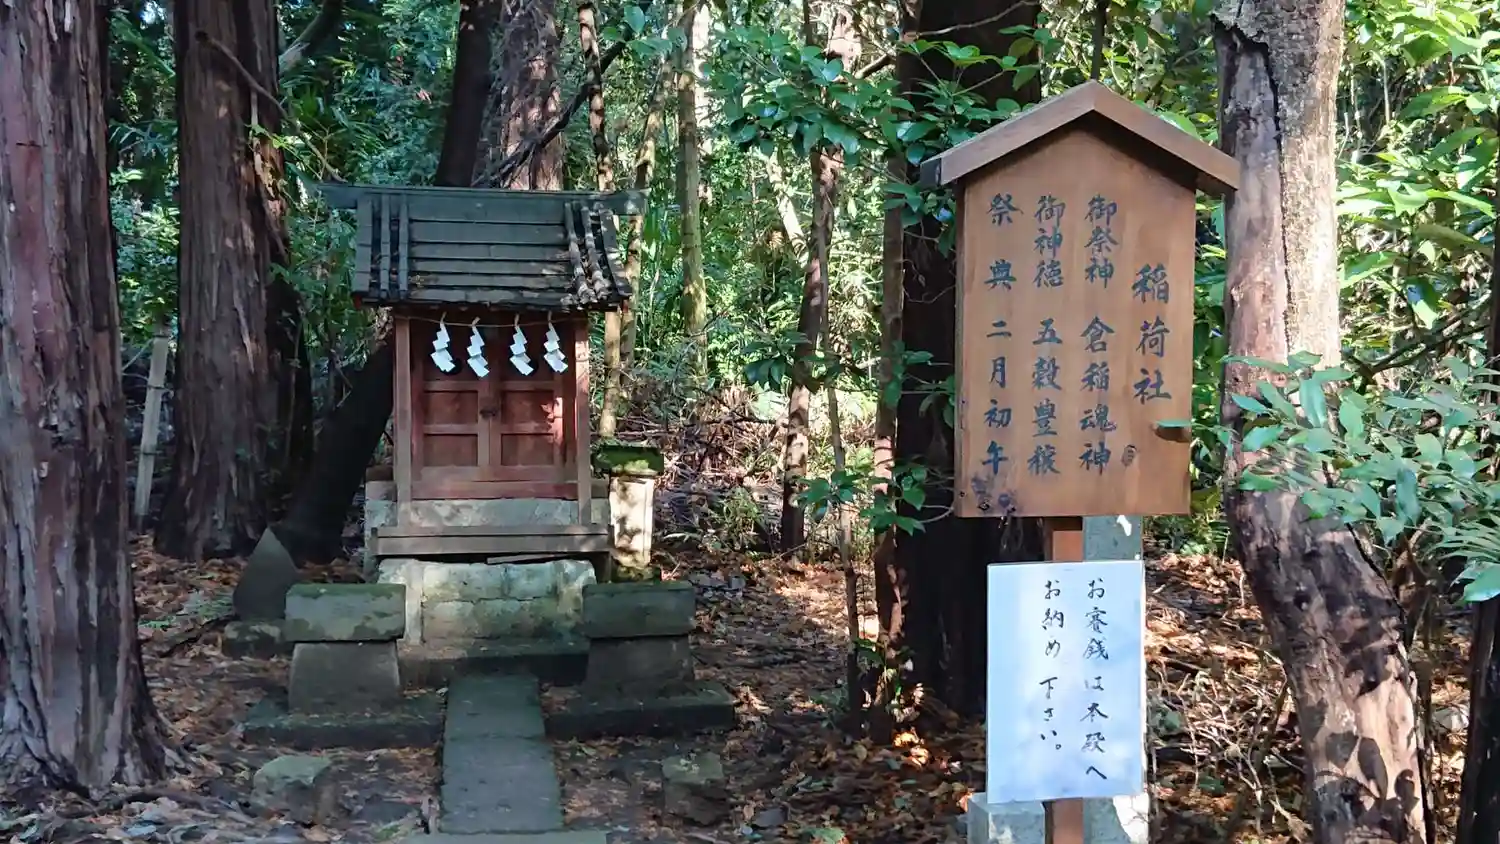 稲荷社
御祭神 倉稲魂神
御神徳 五穀豊穣
祭典 二月初午
お賽銭は本殿へ
お納め下さい。